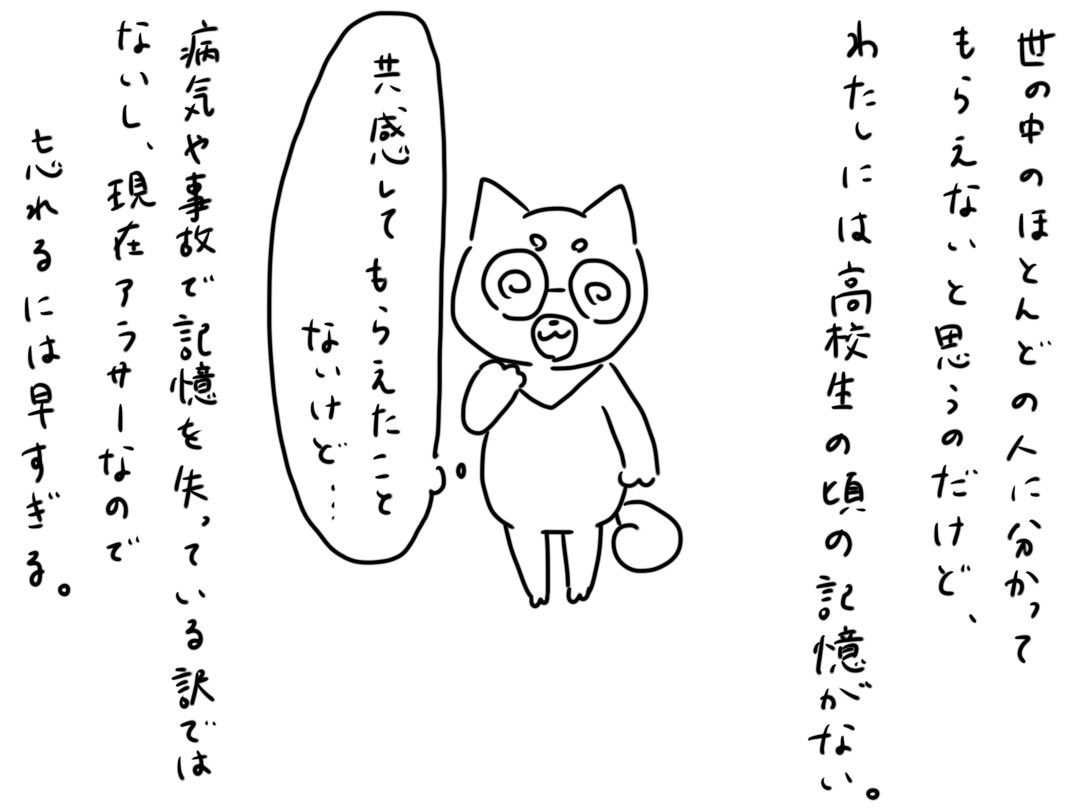 世の中のほとんどの人に分かって
もらえないと思うのだけど、
わたしには高校生の頃の記憶がない。
共感してもらえたこと
ないけど…
病気や事故で記憶を失っている訳では
ないし、現在アラサーなので
忘れるには早すぎる。